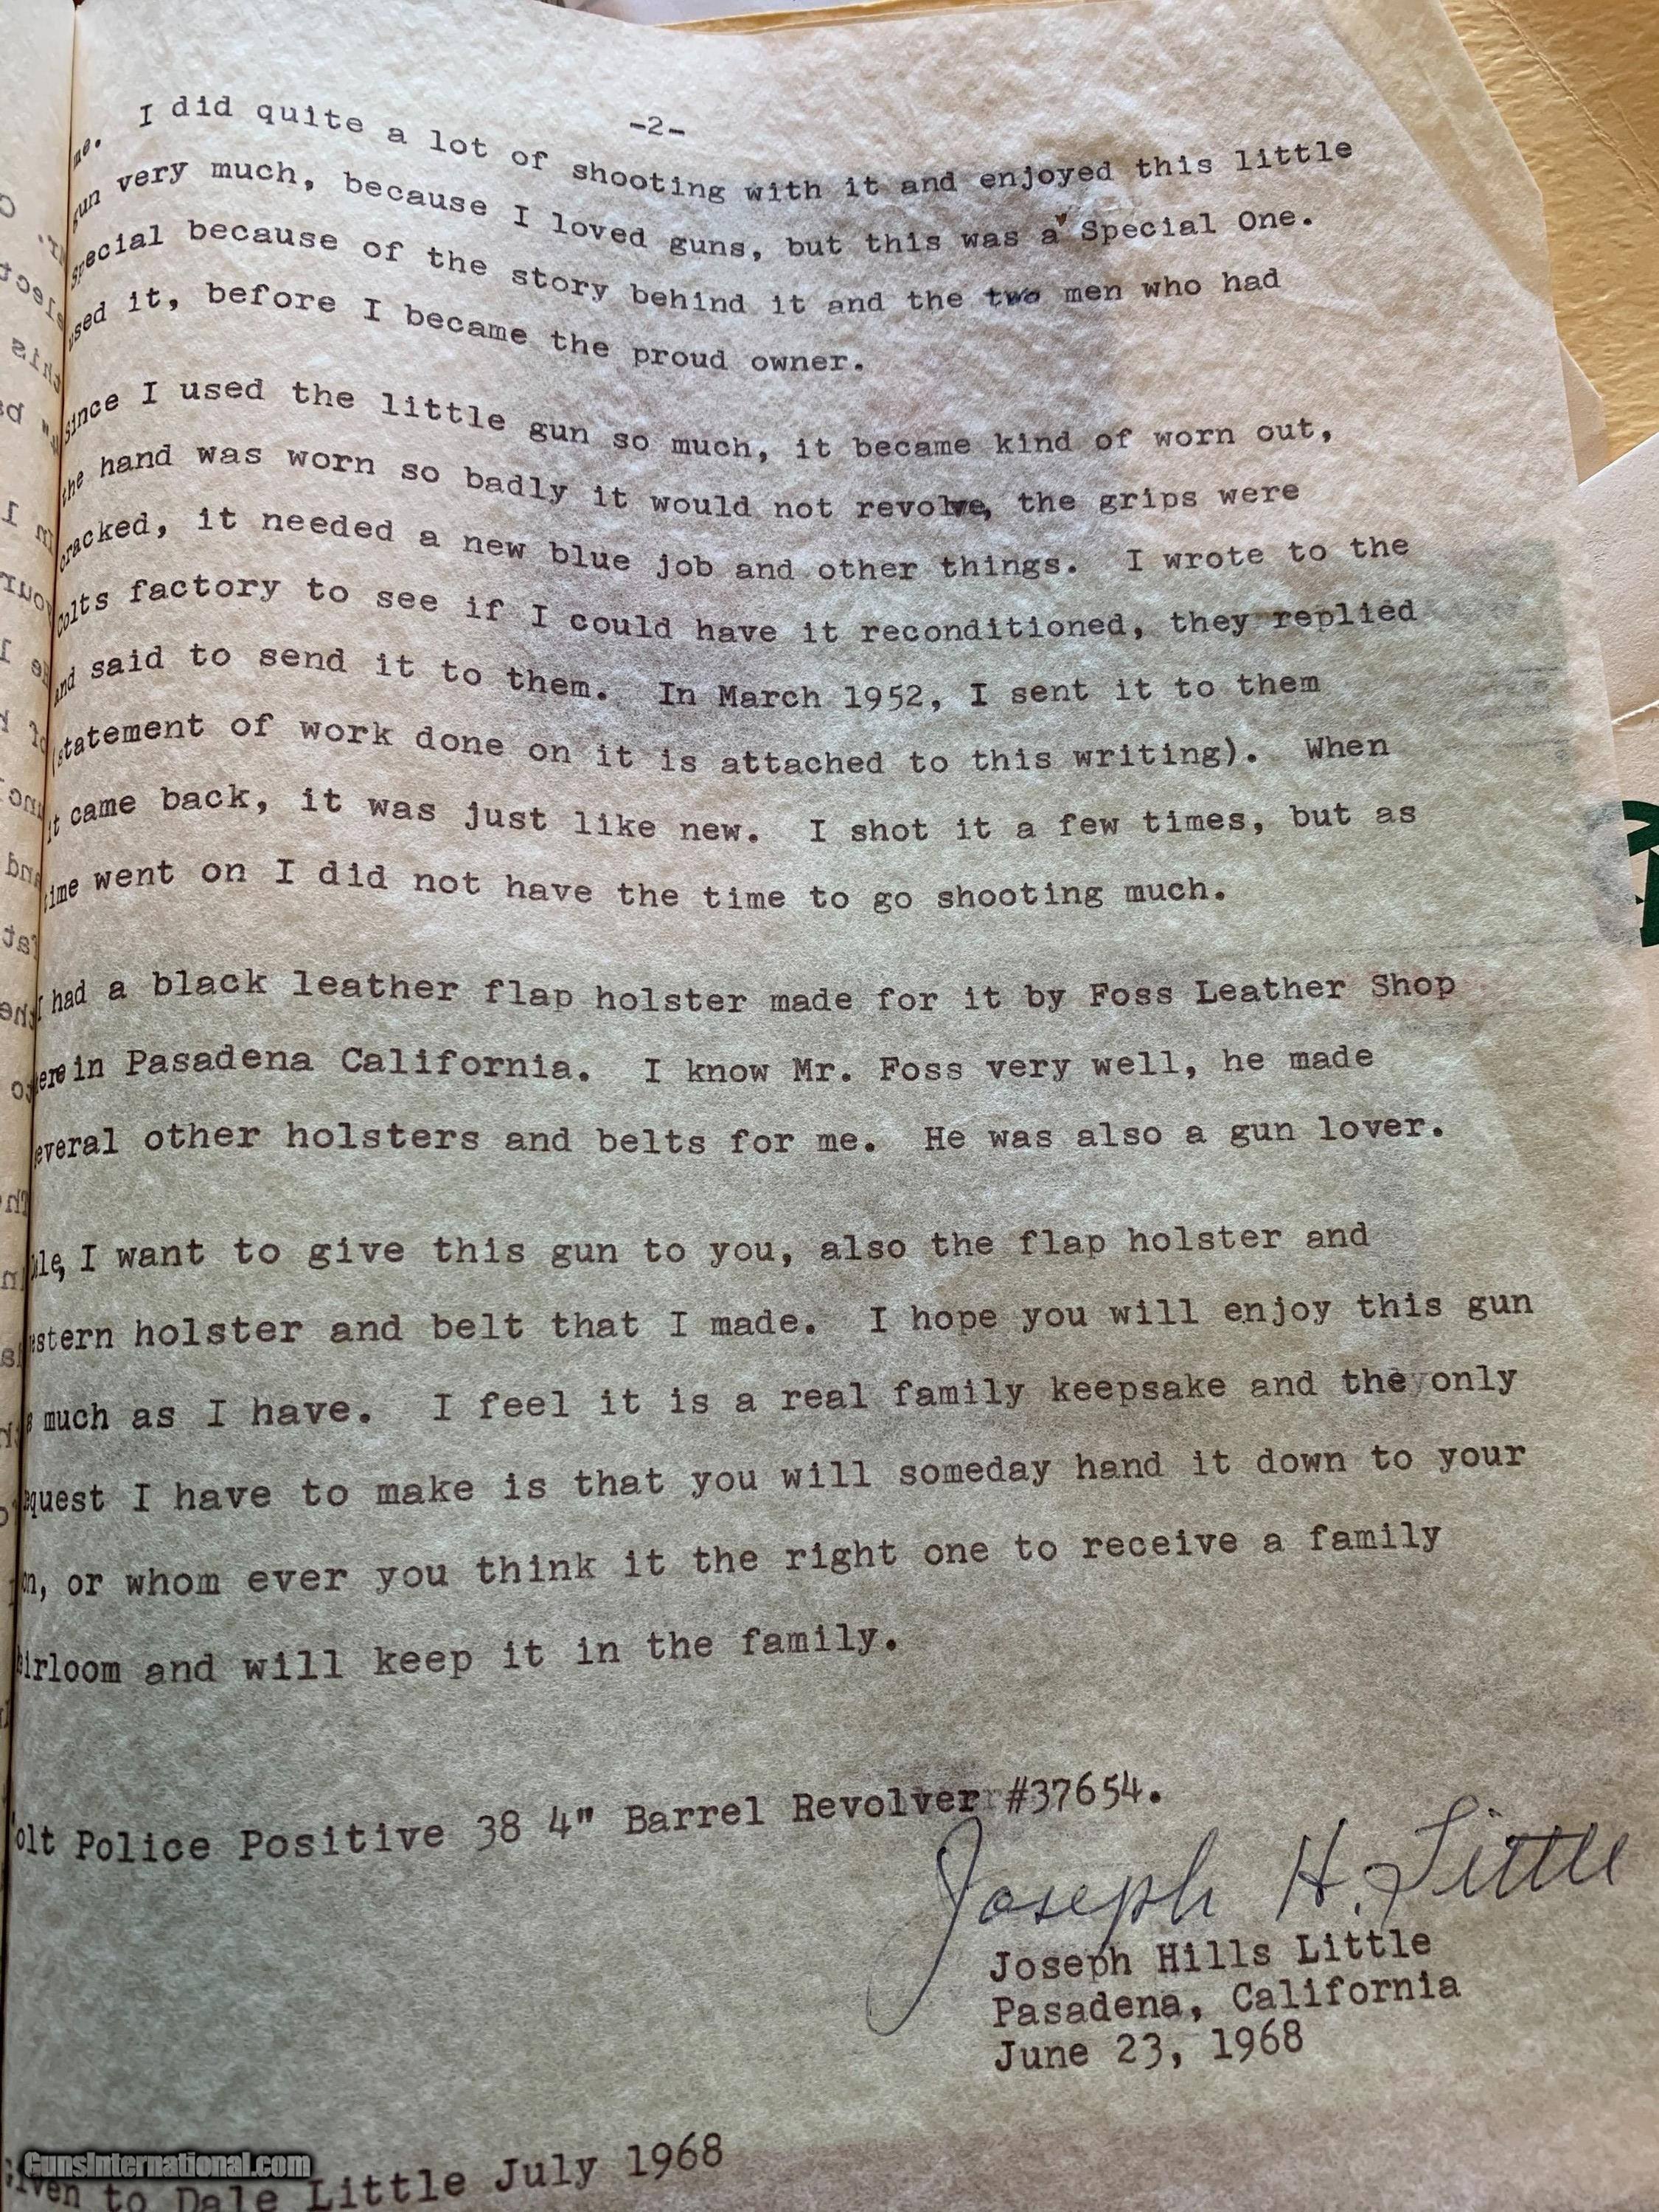 -2-
me. I did quite a lot of shooting with it and enjoyed this little
gun very much, because I loved guns, but this was a Special One.
Special because of the story behind it and the two men who had
used it, before I became the proud owner.
Since I used the little gun so much, it became kind of worn out,
the hand was worn so badly it would not revolve, the grips were
cracked, it needed a new blue job and other things. I wrote to the
Colts factory to see if I could have it reconditioned, they replied
and said to send it to them. In March 1952, I sent it to them
(statement of work done on it is attached to this writing). When
it came back, it was just like new. I shot it a few times, but as
time went on I did not have the time to go shooting much.
I had a black leather flap holster made for it by Foss Leather Shop
here in Pasadena California. I know Mr. Foss very well, he made
everal other holsters and belts for me. He was also a gun lover.
ale, I want to give this gun to you, also the flap holster and
estern holster and belt that I made. I hope you will enjoy this gun
s much as I have. I feel it is a real family keepsake and the only
equest I have to make is that you will someday hand it down to your
on, or whom ever you think it the right one to receive a family
eirloom and will keep it in the family.
olt Police Positive 38 4" Barrel Revolver #37654.
Joseph H. Little
Joseph Hills Little
Pasadena, California
June 23, 1968
Given to Dale Little July 1968
GunsInternational.com